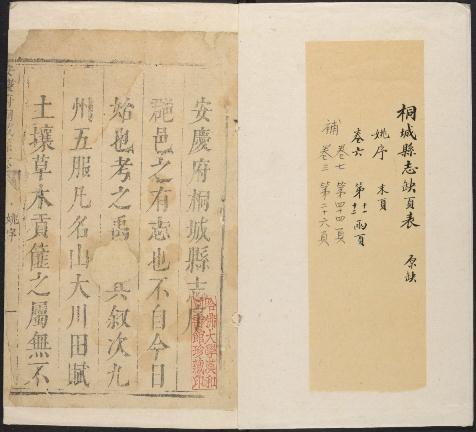 桐城縣志缺頁表 原缺
姚序 末頁
卷六 第十一十二兩頁
補 卷七 第四十四頁
卷三 第二十六頁
安慶府桐城縣志序
郡邑之有志也不自今日
始也考之禹 其叙次九
州五服凡名山大川田賦
土壤草木貢篚之屬無不
姚序
哈佛大學漢和
圖書館珍藏印